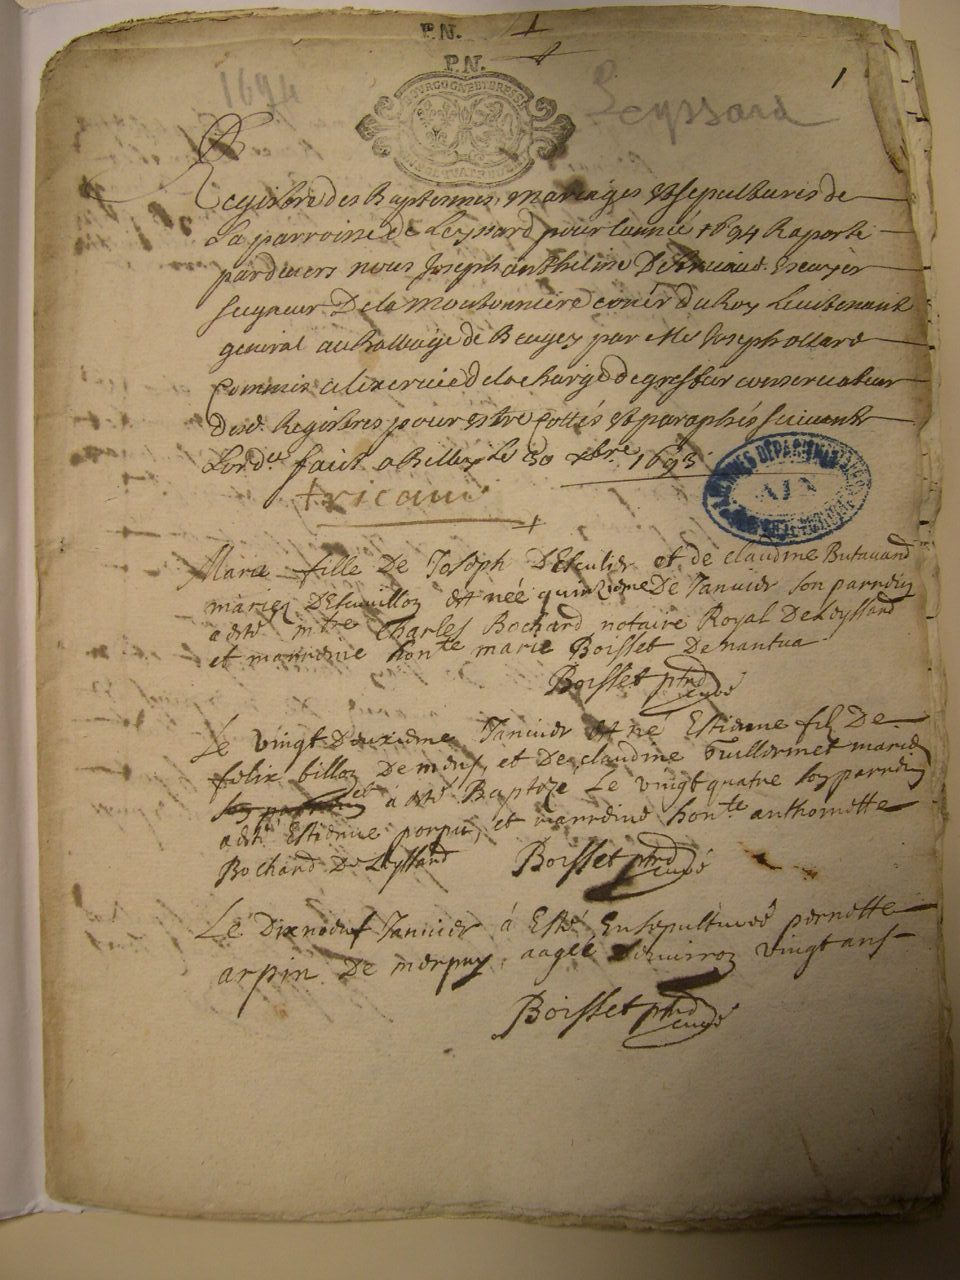 P.N. 1
P.N.
1
1694
Leyssard
Registre des Baptemes, mariages et sepultures de
La parroisse de Leyssard pour lannée 1694 Raporté
pardevers nous Joseph anthelme De tricaud Escuyer
seigneur De la moutonniere coner du Roy Lieutenant
general au Balliage de Beugey par Me Joseph ollard
Commis a lexercice de la charge de greffier conservateur
desd. Registres pour estre Cottés et paraphés suivant
Lord.ce fait a Belley le 30 xbre 1693
tricaud
ARCHIVES DÉPARTEMENTALES
AIN
Marie fille De Joseph et de claudine Butavand
mariez est neé quinzieme De Janvier son parrein
a esté mtre Charles Bochard notaire Royal De Leyssard
et marreine honte marie Boisset De nantua
Boisset ptre curé
Le vingt deuxieme Janvier est né Estienne filz De
felix billon De et De claudine Guillermet mariez
et á esté Baptize Le vingt quatre son parrein
a esté Estienne et marreine honte anthoinette
Bochard De Leyssard Boisset ptre curé
Le Dixneuf Janvier á Esté Ensepulturée pernette
arpin De merpuy, aagée denviron vingt ans
Boisset ptre curé